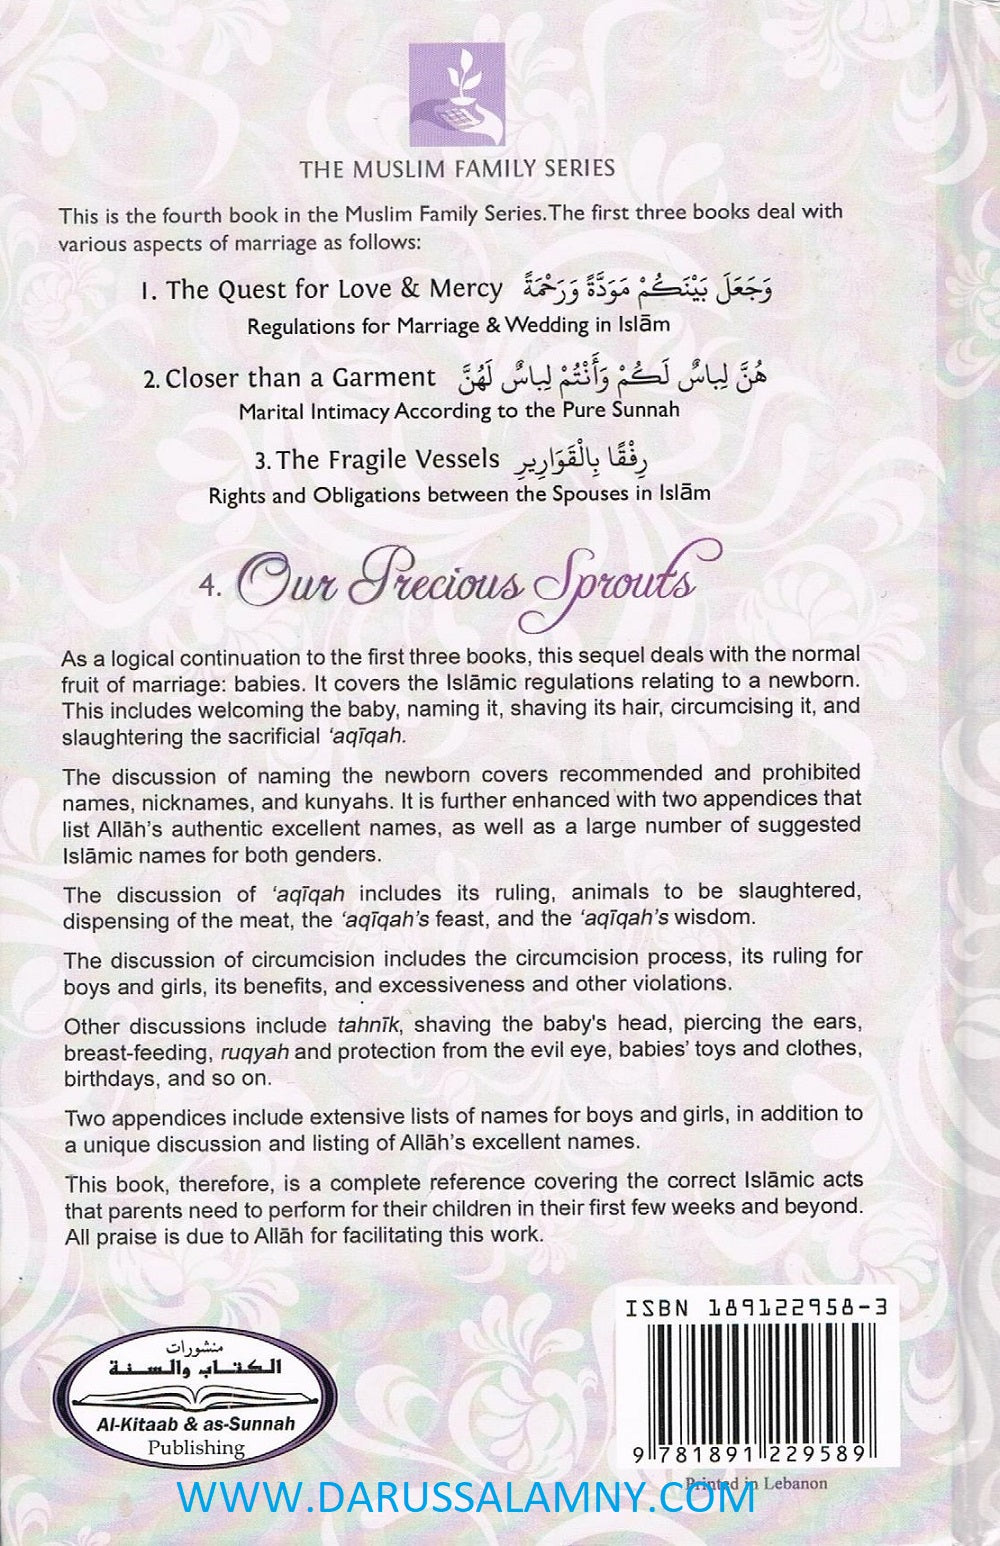 THE MUSLIM FAMILY SERIES
This is the fourth book in the Muslim Family Series.The first three books deal with
various aspects of marriage as follows:
1. The Quest for Love & Mercy وَجَعَلَ بَيْنَكُمْ مَوَدَّةً وَرَحْمَةً
Regulations for Marriage & Wedding in Islām
2. Closer than a Garment هُنَّ لِباسٌ لَكُمْ وَأَنْتُمْ لِباسٌ لَهُنَّ
Marital Intimacy According to the Pure Sunnah
3. The Fragile Vessels رِفْقًا بِالْقَوَارِيرِ
Rights and Obligations between the Spouses in Islām
4. Our Precious Sprouts
As a logical continuation to the first three books, this sequel deals with the normal
fruit of marriage: babies. It covers the Islāmic regulations relating to a newborn.
This includes welcoming the baby, naming it, shaving its hair, circumcising it, and
slaughtering the sacrificial ‘aqīqah.
The discussion of naming the newborn covers recommended and prohibited
names, nicknames, and kunyahs. It is further enhanced with two appendices that
list Allāh’s authentic excellent names, as well as a large number of suggested
Islāmic names for both genders.
The discussion of ‘aqīqah includes its ruling, animals to be slaughtered,
dispensing of the meat, the ‘aqīqah’s feast, and the ‘aqīqah’s wisdom.
The discussion of circumcision includes the circumcision process, its ruling for
boys and girls, its benefits, and excessiveness and other violations.
Other discussions include tahnīk, shaving the baby's head, piercing the ears,
breast-feeding, ruqyah and protection from the evil eye, babies’ toys and clothes,
birthdays, and so on.
Two appendices include extensive lists of names for boys and girls, in addition to
a unique discussion and listing of Allāh’s excellent names.
This book, therefore, is a complete reference covering the correct Islāmic acts
that parents need to perform for their children in their first few weeks and beyond.
All praise is due to Allāh for facilitating this work.
ISBN 189122958-3
9 781891 229589
Printed in Lebanon
منشورات
الكتاب والسنة
Al-Kitaab & as-Sunnah
Publishing
WWW.DARUSSALAMNY.COM